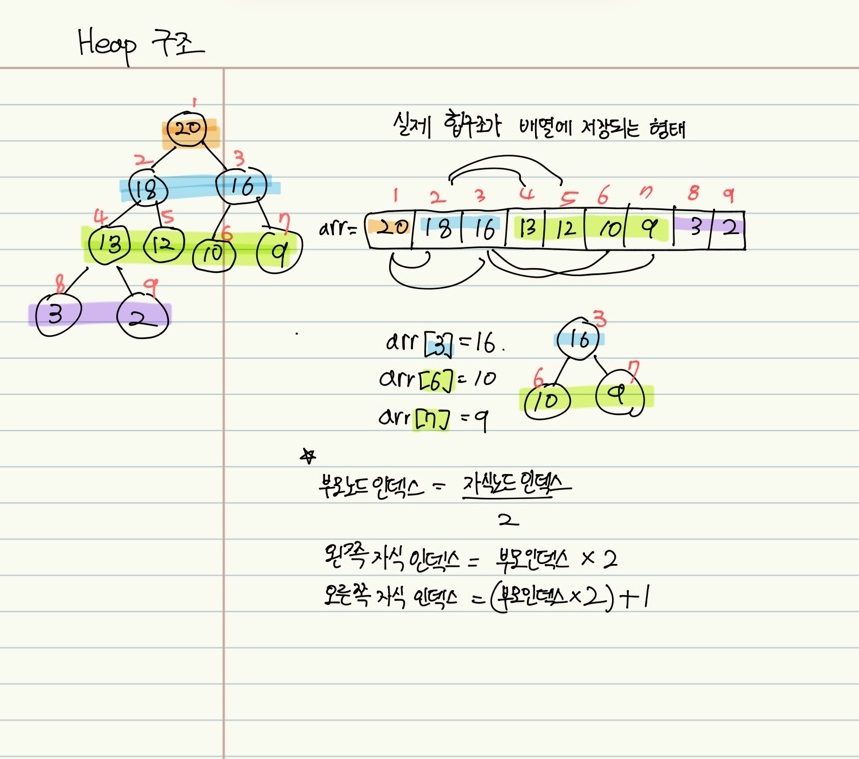 Heap 구조
1
20
2 3
18 16
4 5 6 7
13 12 10 9
8 9
3 2
실제 힙구조가 배열에 저장되는 형태
1 2 3 4 5 6 7 8 9
arr= 20 18 16 13 12 10 9 3 2
arr[3]=16.
arr[6]=10
arr[7]=9
3
16
6 7
10 9
☆
부모노드 인덱스 = 자식노드 인덱스
2
왼쪽 자식 인덱스 = 부모인덱스 × 2
오른쪽 자식 인덱스 =(부모인덱스×2)+1